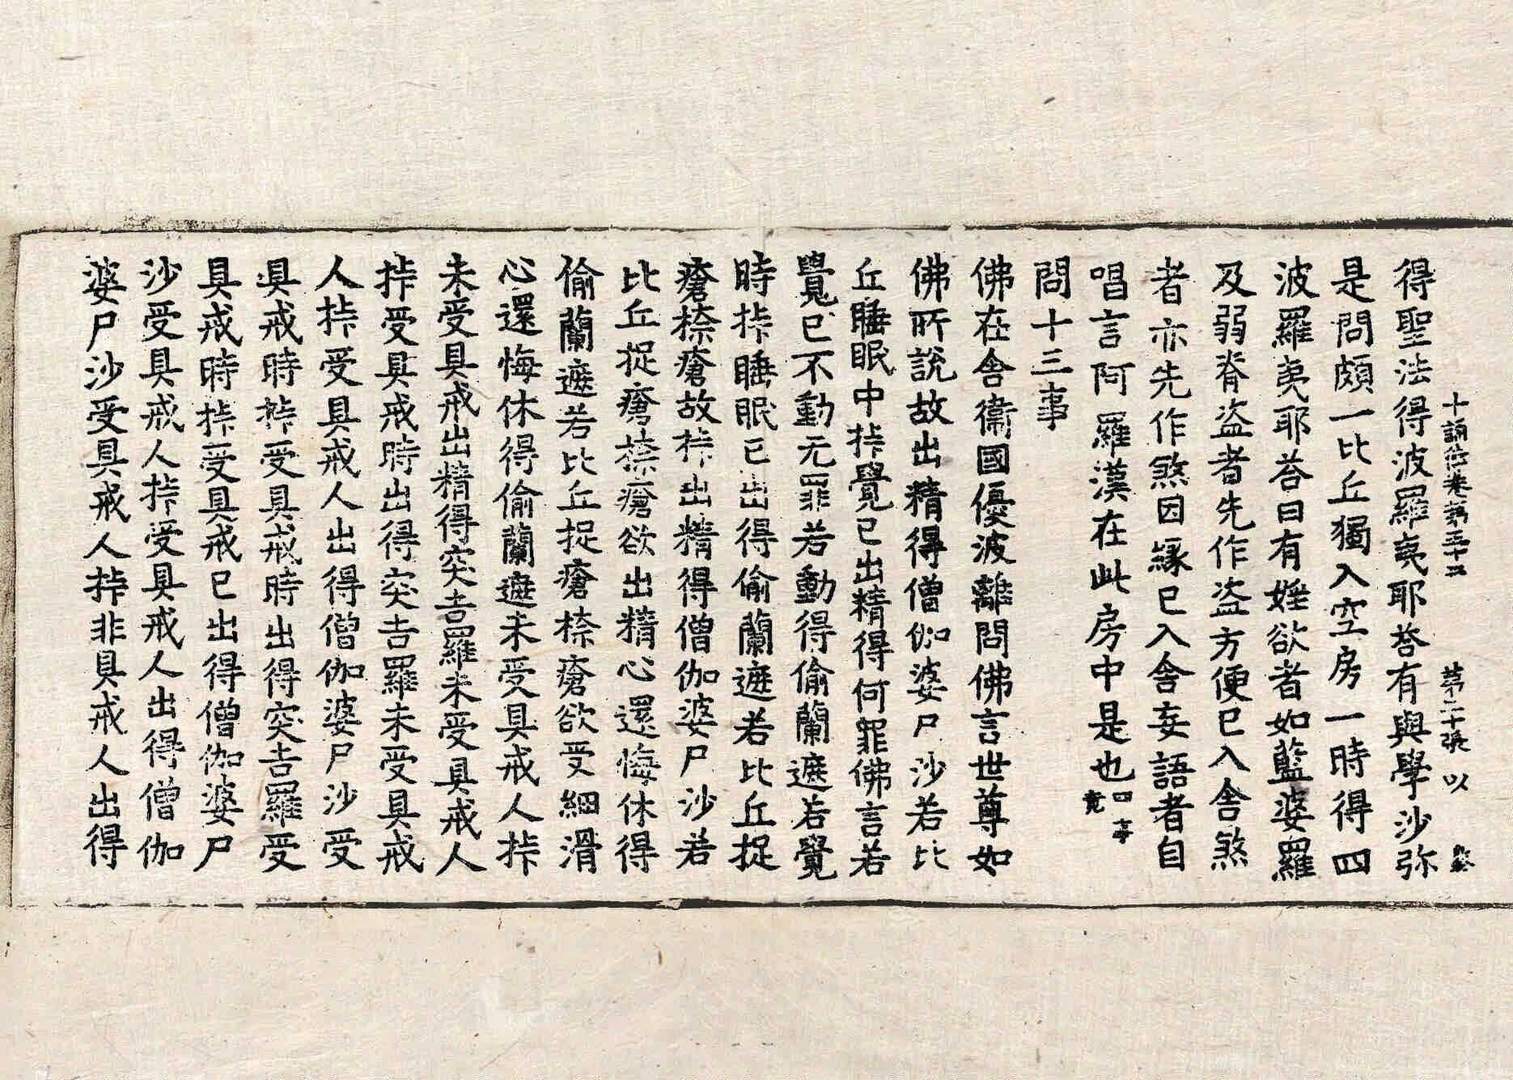 十誦律卷第五十二 第二十張 以
得聖法得波羅夷耶荅有與學沙弥
是問頗一比丘獨入空房一時得四
波羅夷耶荅曰有婬欲者如藍婆羅
及弱脊盜者先作盜方便已入舍煞
者亦先作煞因緣已入舍妄語者自
唱言阿羅漢在此房中是也四事竟
問十三事
佛在舍衛國優波離問佛言世尊如
佛所說故出精得僧伽婆尸沙若比
丘睡眠中挊覺已出精得何罪佛言若
覺已不動无罪若動得偷蘭遮若覺
時挊睡眠已出得偷蘭遮若比丘捉
瘡㮈瘡故挊出精得僧伽婆尸沙若
比丘捉瘡㮈瘡欲出精心還悔休得
偷蘭遮若比丘捉瘡㮈瘡欲受細滑
心還悔休得偷蘭遮未受具戒人挊
未受具戒出精得突吉羅未受具戒人
挊受具戒時出得突吉羅未受具戒
人挊受具戒人出得僧伽婆尸沙受
具戒時挊受具戒時出得突吉羅受
具戒時挊受具戒已出得僧伽婆尸
沙受具戒人挊受具戒人出得僧伽
婆尸沙受具戒人挊非具戒人出得